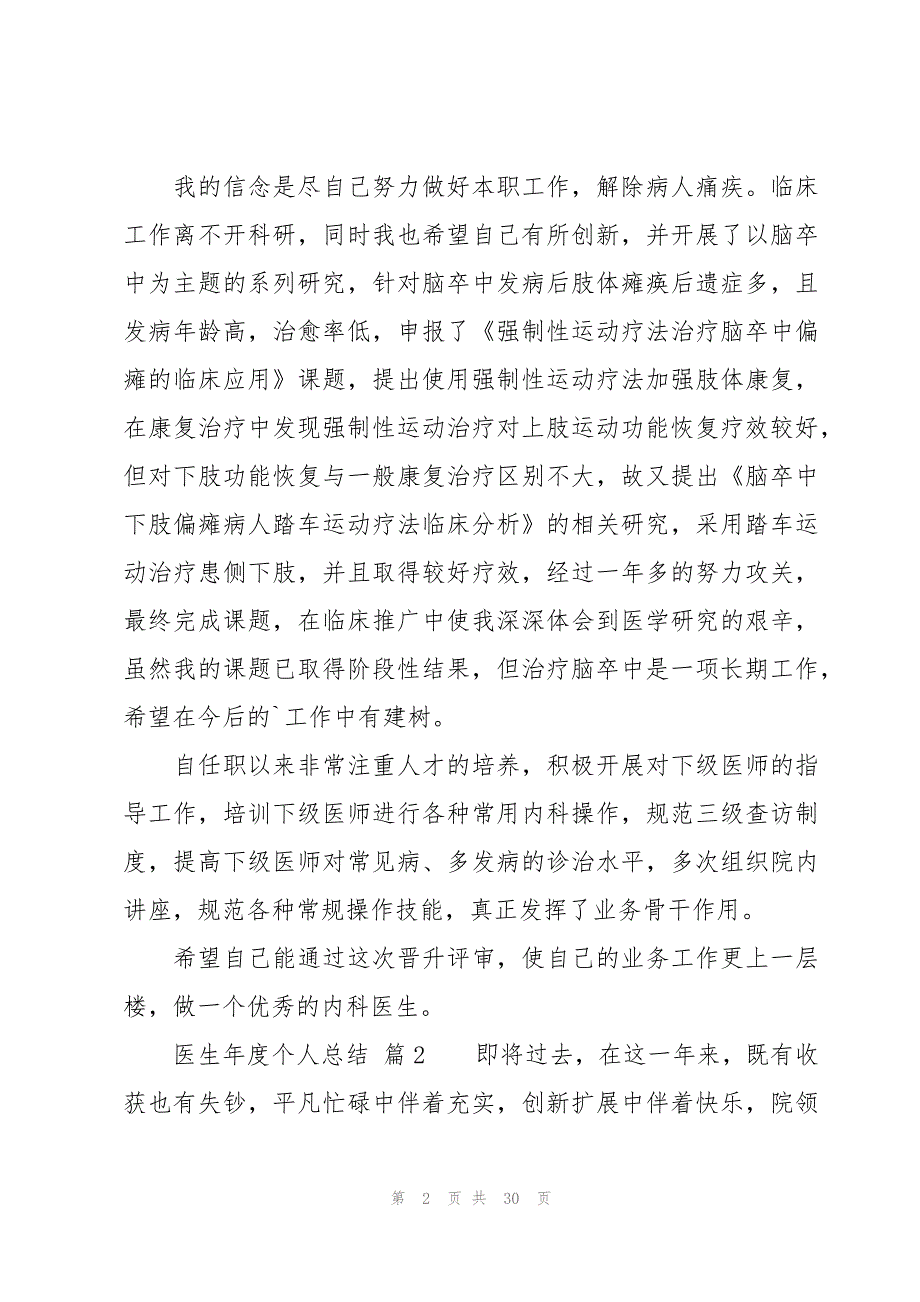 我的信念是尽自己努力做好本职工作，解除病人痛疾。临床
工作离不开科研，同时我也希望自己有所创新，并开展了以脑卒
中为主题的系列研究，针对脑卒中发病后肢体瘫痪后遗症多，且
发病年龄高，治愈率低，申报了《强制性运动疗法治疗脑卒中偏
瘫的临床应用》课题，提出使用强制性运动疗法加强肢体康复，
在康复治疗中发现强制性运动治疗对上肢运动功能恢复疗效较好，
但对下肢功能恢复与一般康复治疗区别不大，故又提出《脑卒中
下肢偏瘫病人踏车运动疗法临床分析》的相关研究，采用踏车运
动治疗患侧下肢，并且取得较好疗效，经过一年多的努力攻关，
最终完成课题，在临床推广中使我深深体会到医学研究的艰辛，
虽然我的课题已取得阶段性结果，但治疗脑卒中是一项长期工作，
希望在今后的`工作中有建树。
自任职以来非常注重人才的培养，积极开展对下级医师的指
导工作，培训下级医师进行各种常用内科操作，规范三级查访制
度，提高下级医师对常见病、多发病的诊治水平，多次组织院内
讲座，规范各种常规操作技能，真正发挥了业务骨干作用。
希望自己能通过这次晋升评审，使自己的业务工作更上一层
楼，做一个优秀的内科医生。
医生年度个人总结 篇2 即将过去，在这一年来，既有收
获也有失钞，平凡忙碌中伴着充实，创新扩展中伴着快乐，院领
第 2 页 共 30 页